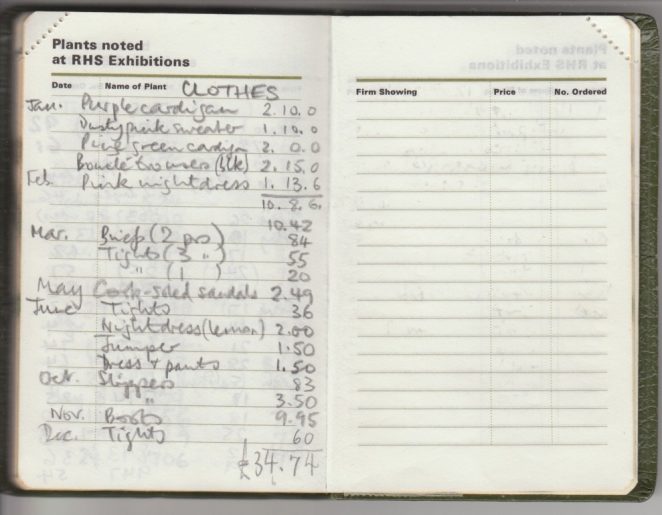 Plants noted
at RHS Exhibitions
Date Name of Plant CLOTHES
Jan. Purple cardigan 2.10.0
Dusty pink sweater 1.10.0
Pine green cardign 2.0.0
Bouclé trousers (blk) 2.15.0
Feb. Pink nightdress 1.13.6
10.8.6.
10.42
Mar. Briefs (2 prs) 84
Tights (3 ") 55
" (1 ) 20
May Cork-soled sandals 2.49
June Tights 36
Nightdress (lemon) 2.00
Jumper 1.50
Dress + pants 1.50
Oct. Slippers 83
" 3.50
Nov. Boots 9.95
Dec. Tights 60
£34.74
Firm Showing Price No. Ordered